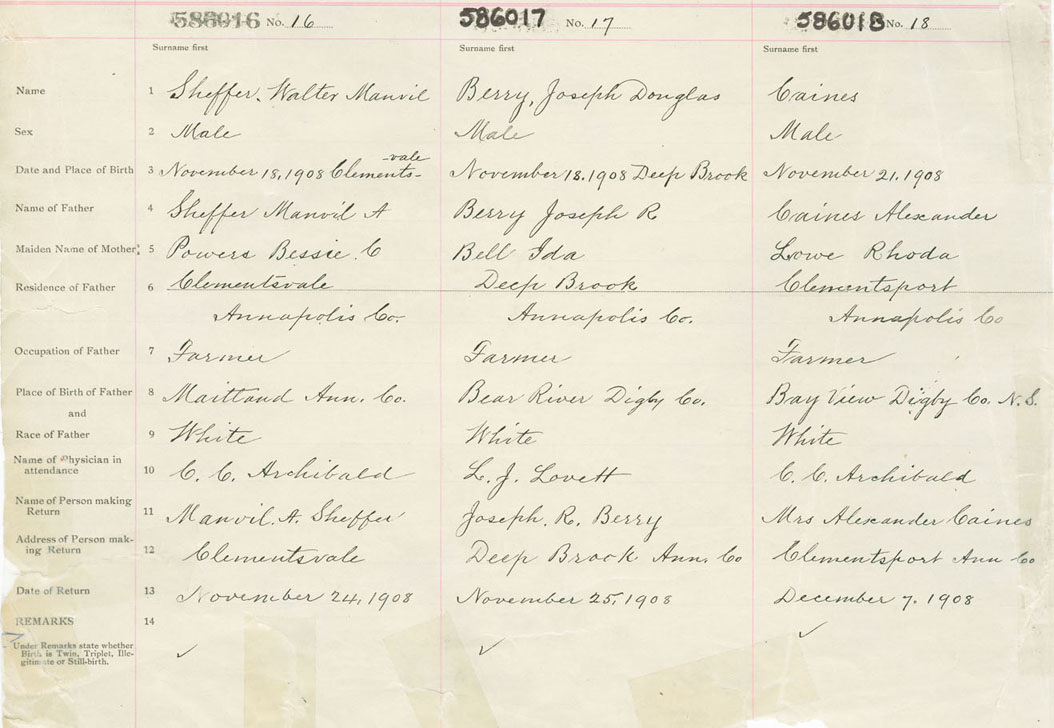 586016 No. 16 586017 No. 17 586018 No. 18
Surname first Surname first Surname first
Name 1 Sheffer. Walter Manvil Berry, Joseph Douglas Caines
Sex 2 Male Male Male
-vale
Date and Place of Birth 3 November 18, 1908 Clements- November 18. 1908 Deep Brook November 21. 1908
Name of Father 4 Sheffer Manvil A Berry Joseph R. Caines Alexander
Maiden Name of Mother 5 Powers Bessie. C Bell Ida Lowe Rhoda
Residence of Father 6 Clementsvale Deep Brook Clementsport
Annapolis Co. Annapolis Co. Annapolis Co
Occupation of Father 7 Farmer Farmer Farmer
Place of Birth of Father 8 Maitland Ann. Co. Bear River Digby Co. Bay View Digby Co. N.S.
and
Race of Father 9 White White White
Name of Physician in
attendance 10 C. C. Archibald L. J. Lovett C. C. Archibald
Name of Person making
Return 11 Manvil. A. Sheffer Joseph. R. Berry Mrs Alexander Caines
Address of Person mak-
ing Return 12 Clementsvale Deep Brook Ann. Co Clementsport Ann Co
Date of Return 13 November 24, 1908 November 25, 1908 December 7. 1908
REMARKS 14
Under Remarks state whether
Birth is Twin, Triplet, Ille-
gitimate or Still-birth. ✓ ✓ ✓